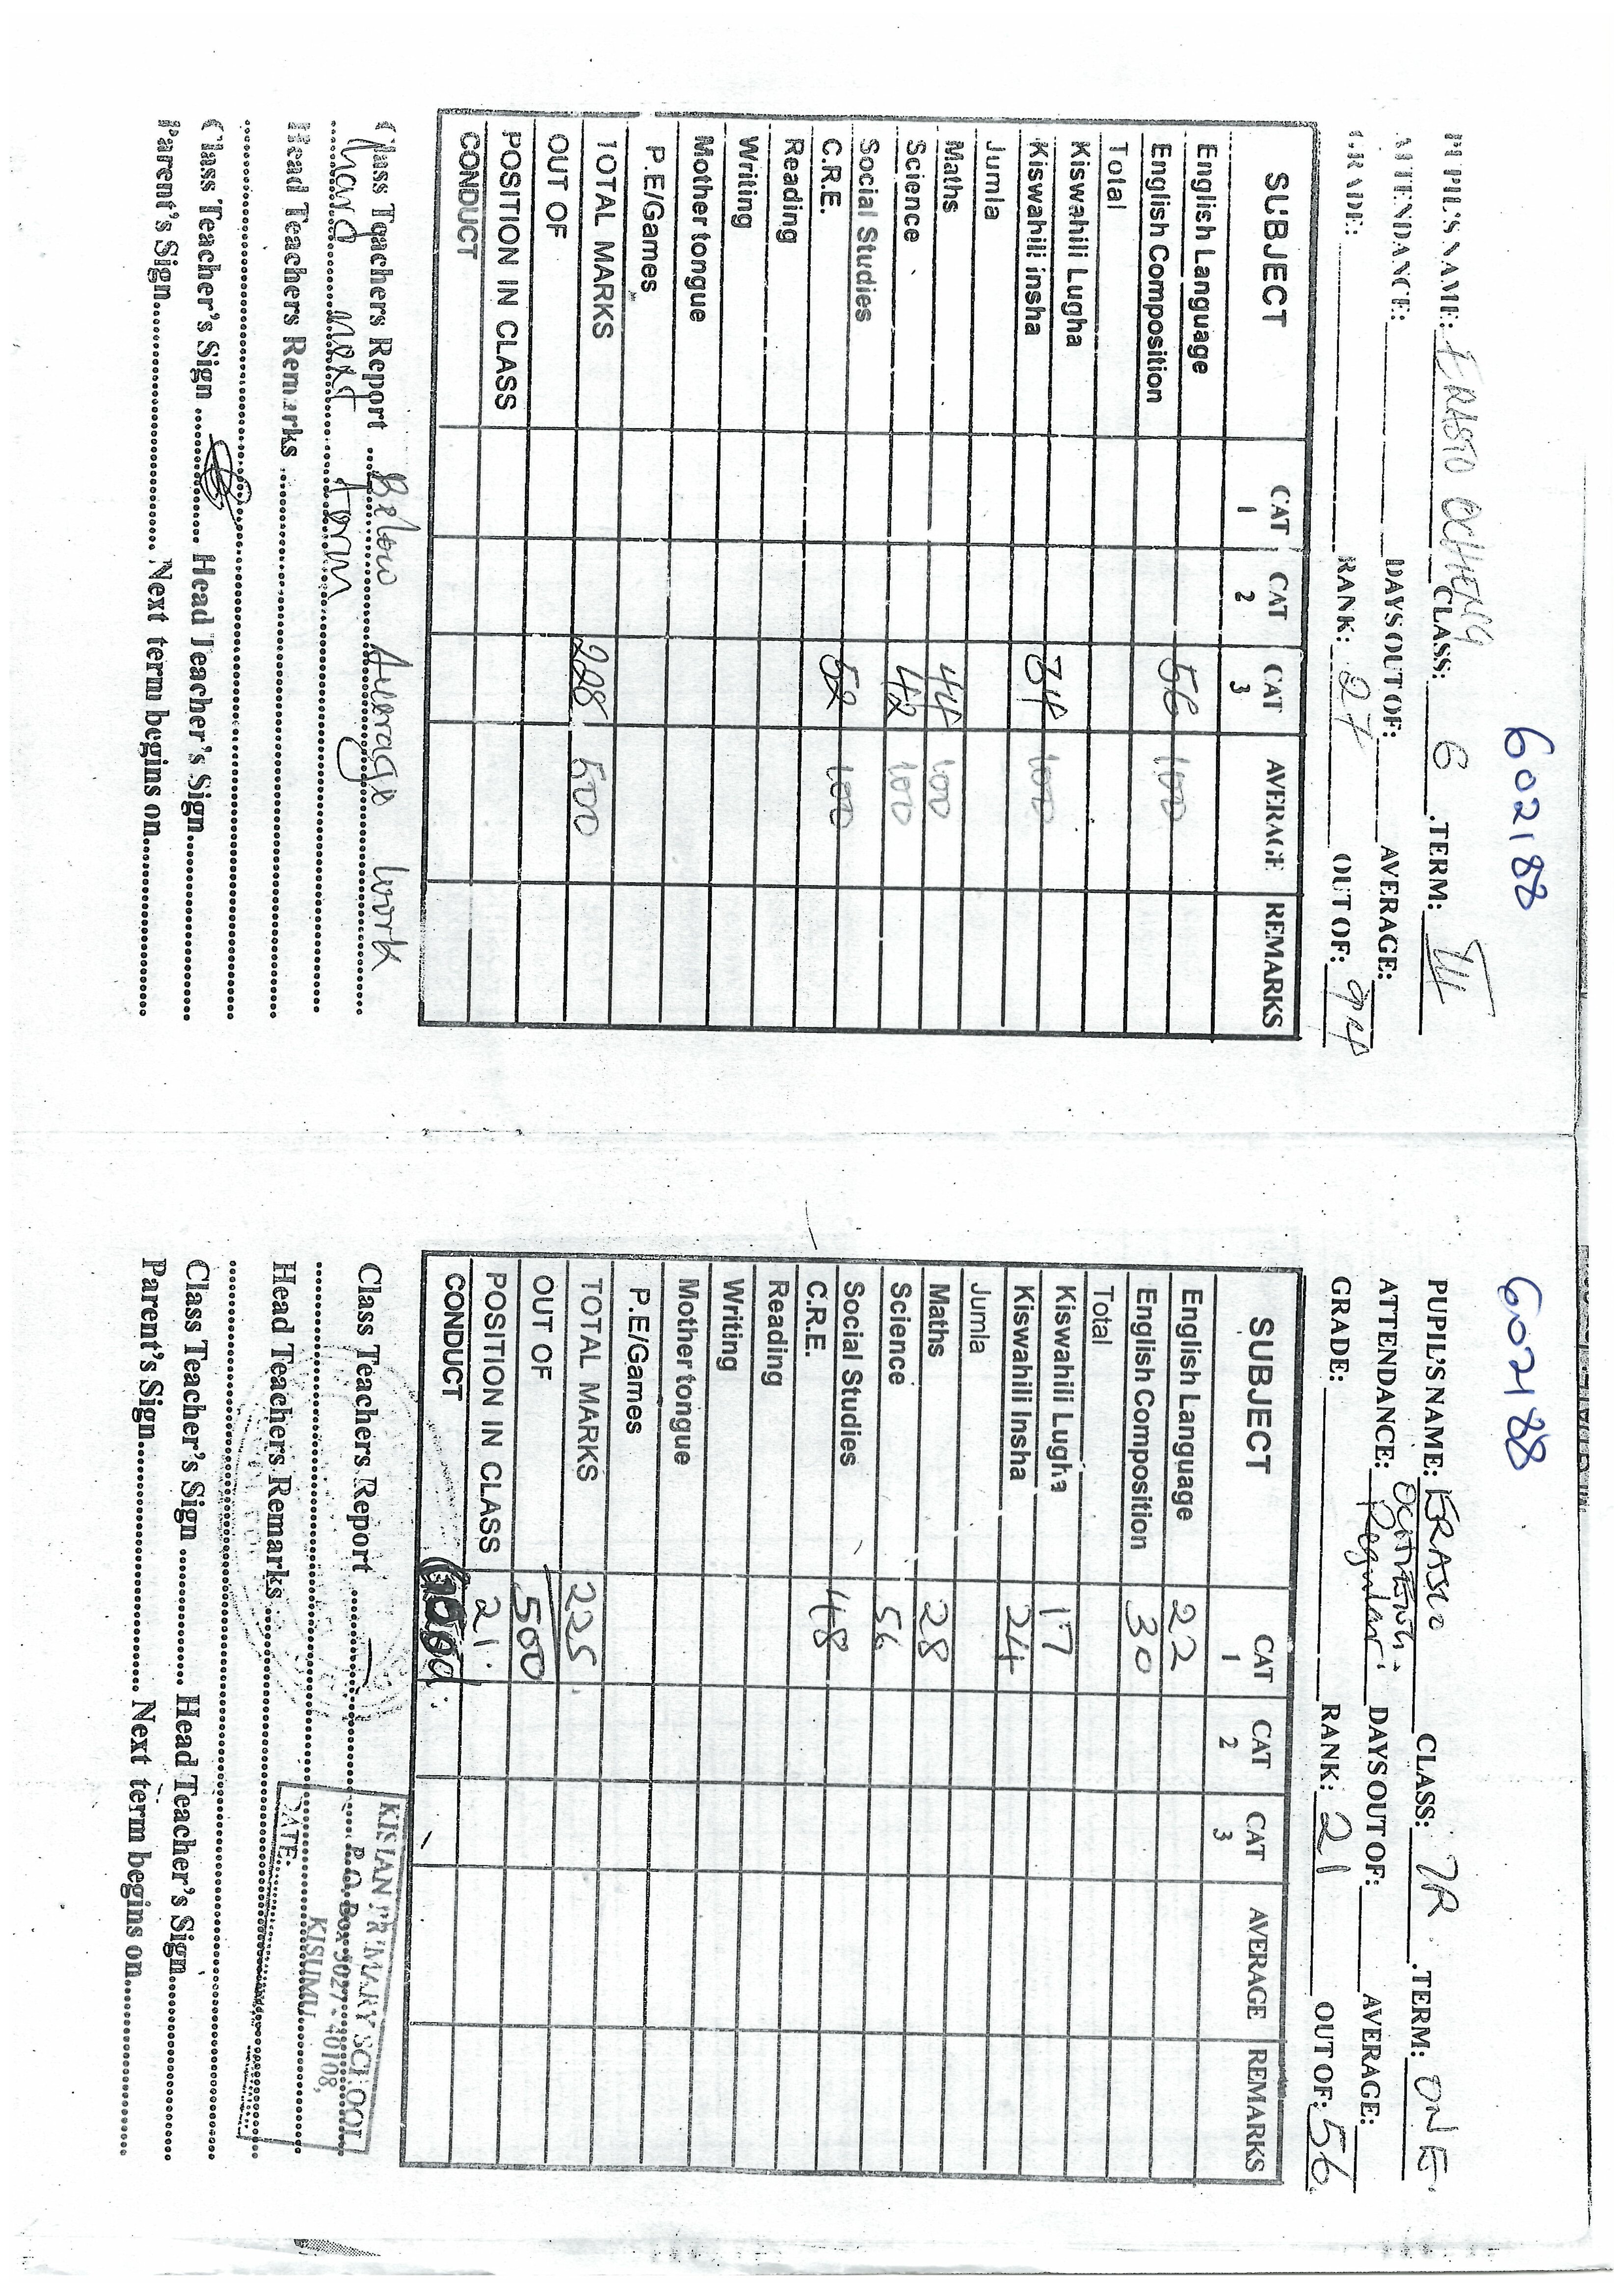 602188
PUPIL'S NAME: ERASTO OCHIENG CLASS: 6 TERM: III
ATTENDANCE: DAYS OUT OF: AVERAGE:
GRADE: RANK: 27 OUT OF: 94
SUBJECT CAT 1 CAT 2 CAT 3 AVERAGE REMARKS
English Language
English Composition 56 100
Total
Kiswahili Lugha
Kiswahili insha 34 100
Jumla
Maths 44 100
Science 42 100
Social Studies
C.R.E. 52 100
Reading
Writing
Mother tongue
P.E/Games
TOTAL MARKS 228 500
OUT OF
POSITION IN CLASS
CONDUCT
Class Teachers Report Below Average work
next term
Head Teachers Remarks
Class Teacher's Sign Head Teacher's Sign
Parent's Sign Next term begins on
602188
PUPIL'S NAME: ERASTO OCHIENG CLASS: 7R TERM: ONE
ATTENDANCE: Regular DAYS OUT OF: AVERAGE:
GRADE: RANK: 21 OUT OF: 56
SUBJECT CAT 1 CAT 2 CAT 3 AVERAGE REMARKS
English Language 22
English Composition 30
Total
Kiswahili Lugha 17
Kiswahili Insha 24
Jumla
Maths 28
Science 56
Social Studies
C.R.E. 48
Reading
Writing
Mother tongue
P.E/Games
TOTAL MARKS 225
OUT OF 500
POSITION IN CLASS 21
CONDUCT Good
Class Teachers Report
Head Teachers Remarks
Class Teacher's Sign Head Teacher's Sign
Parent's Sign Next term begins on
KISIAN PRIMARY SCHOOL
P.O. Box 9027 - 40108,
KISUMU
DATE: